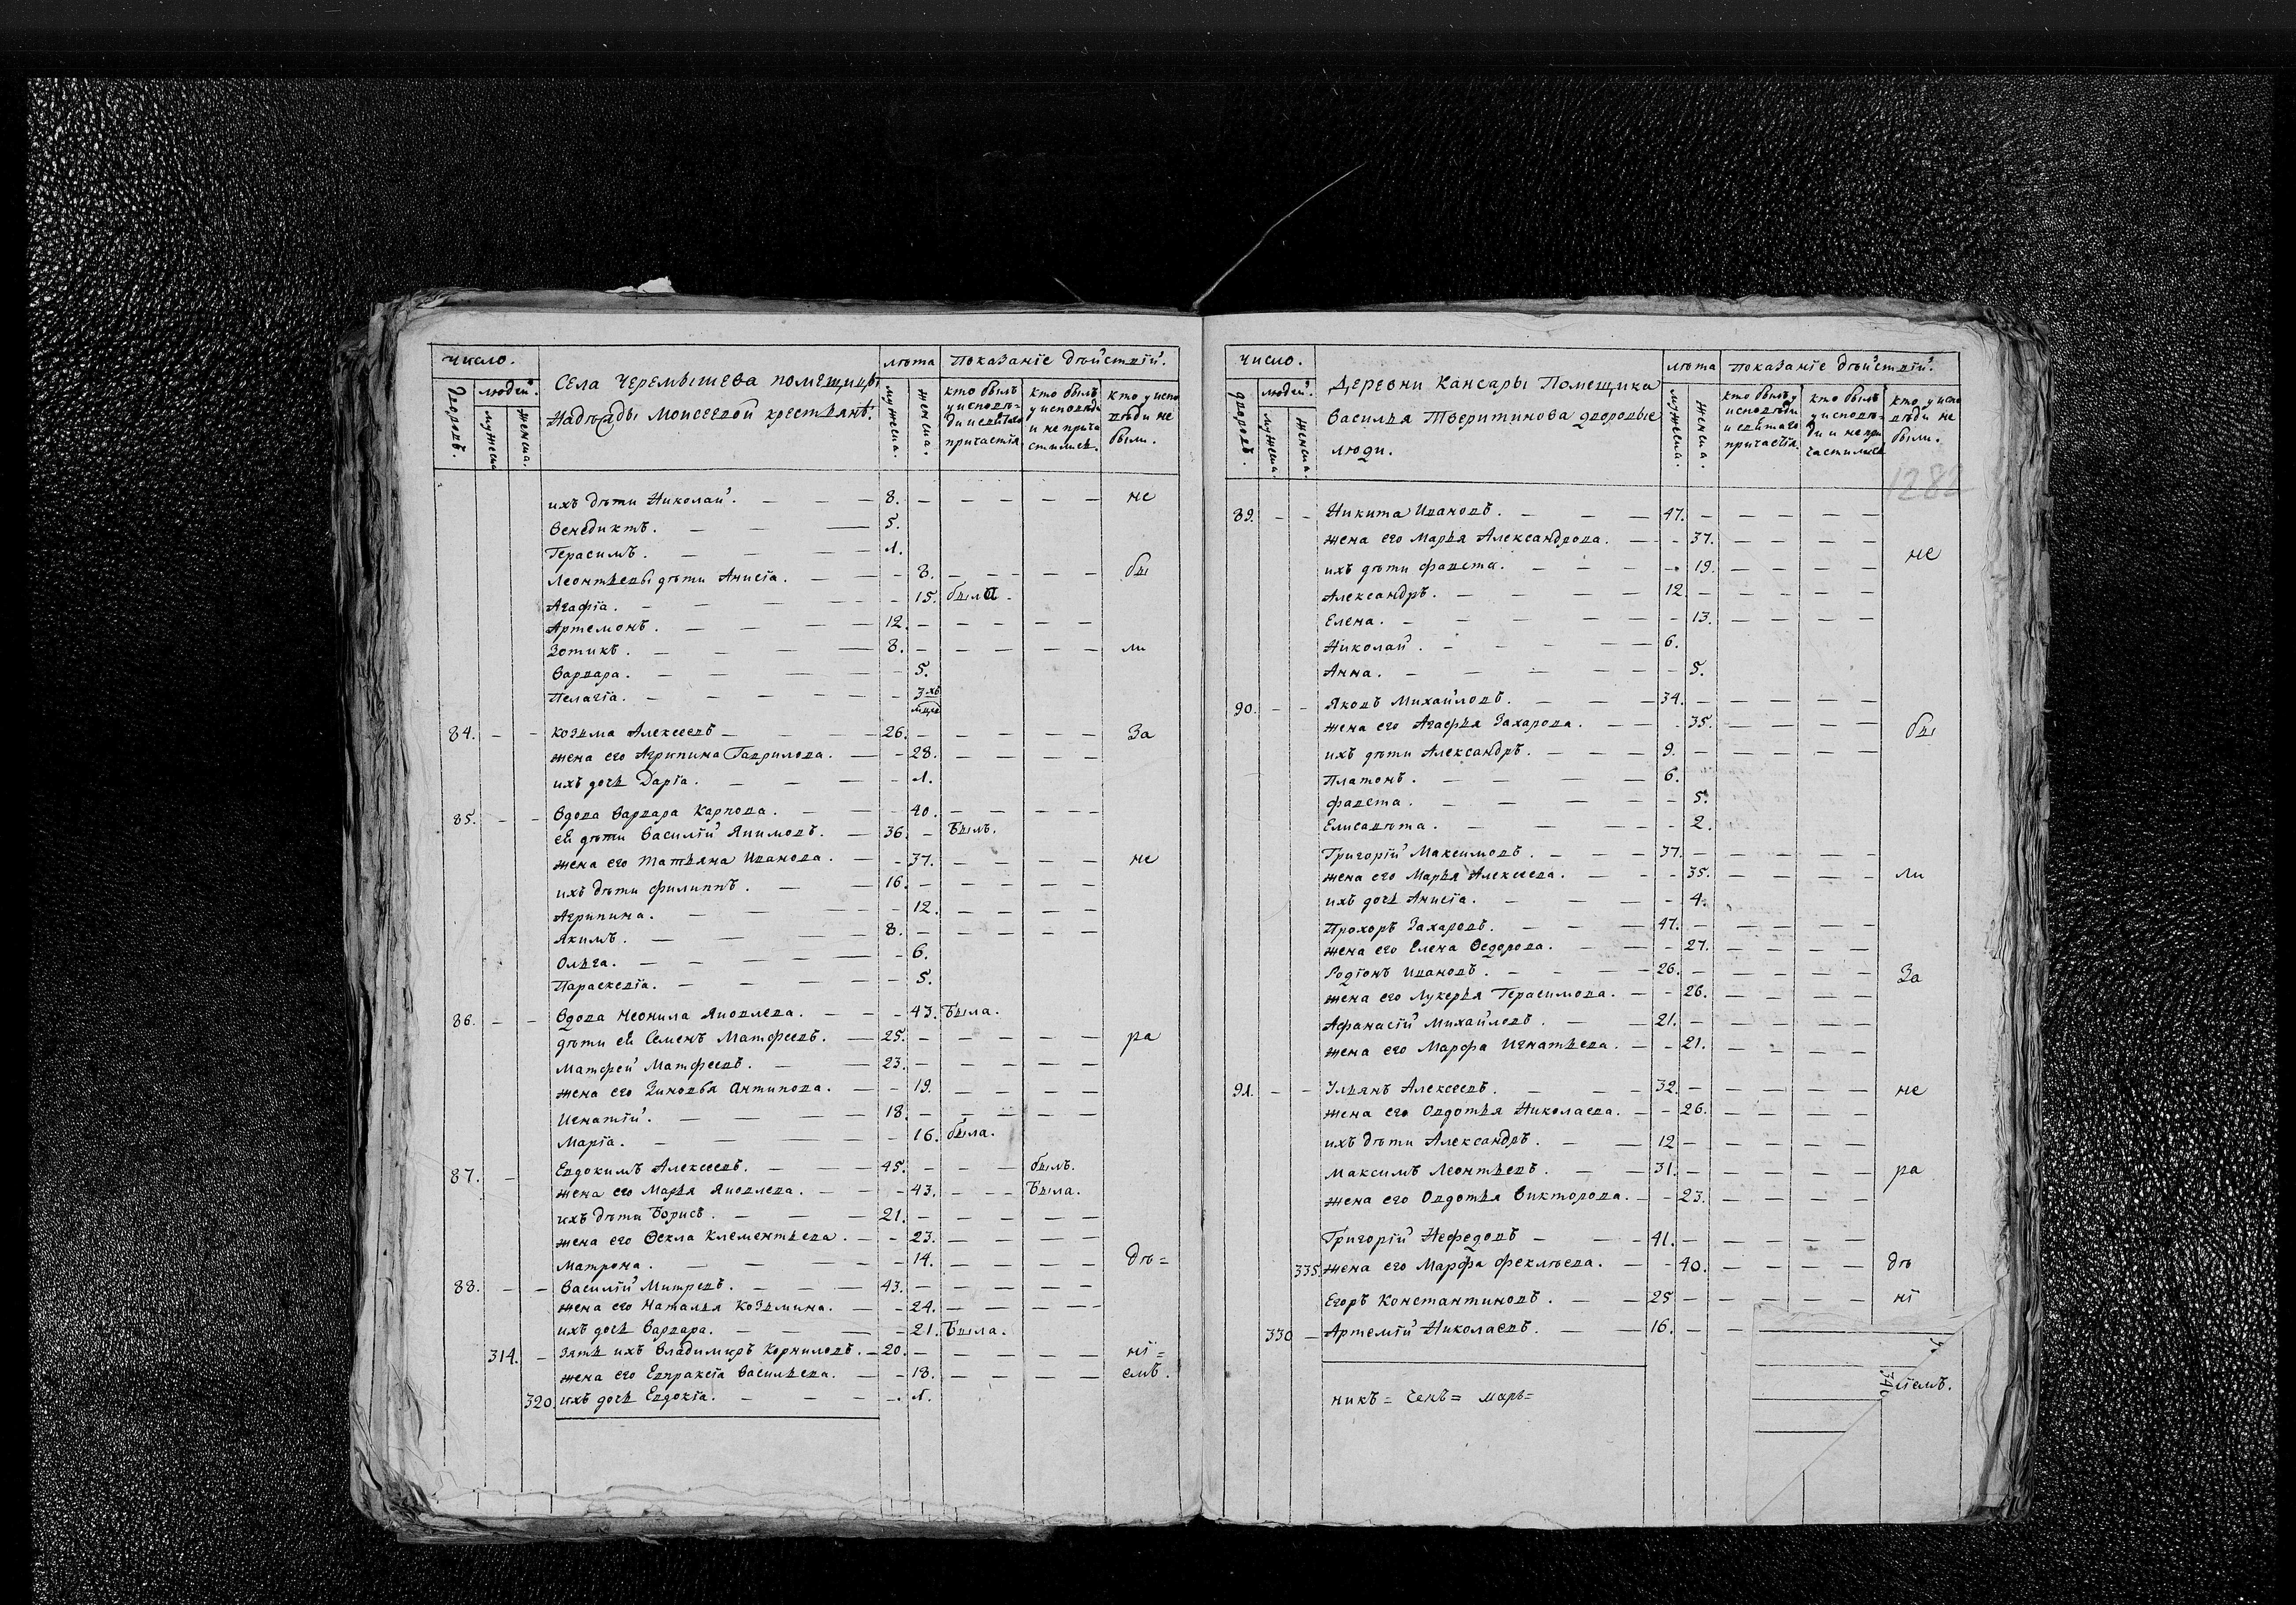 число.
лѣта
показаніе дѣйствій.
дворовъ.
людей.
мужеска.
женска.
Села Черемышева помѣщицы
Надѣжды Моисеевой крестьянѣ.
мужеска.
женска.
кто былъ у исповѣди и святаго причастія
кто былъ у исповѣди и не причастились.
кто у исповѣди не были.
ихъ дѣти Николай. — — — 8. — — — — — не
Венедиктъ. — — — 5.
Герасимъ. — — — 1.
Леонтьевы дѣти Анисіа. — — - 8. — — — — бы
Агафіа. — — — — - 15. была.
Артемонъ. — — — — 12. — — — — —
Зотикъ. — — — — 8. — — — — — ли
Варвара. — — — — - 5.
Пелагіа. — — — — - 3хъ мцсв
84. - - Козьма Алексеевъ — — — 26. — — — — — За
жена его Агрипина Гаврилова. — - 28. — — — —
ихъ дочь Даріа. — — — - 1.
85. - - Вдова Варвара Карпова. — — - 40. — — — —
ей дѣти Василій Якимовъ. — 36. - былъ.
жена его Татьяна Иванова. — - 37. — — — — не
ихъ дѣти Филиппъ. — — 16. — — — — —
Агрипина. — — — - 12. — — — —
Якимъ. — — — — 8. — — — — —
Ольга. — — — — - 6.
Параскевіа. — — — — - 5.
86. - - Вдова Неонила Яковлева. — — - 43. была.
дѣти ей Семенъ Матфеевъ. — 25. — — — — — ра
Матфей Матфеевъ. — — 23. — — — — —
жена его Зиновья Антипова. — - 19. — — — —
Игнатій. — — — — 18. — — — — —
Маріа. — — — — - 16. была.
87. - Евдокимъ Алексеевъ. — — — 45. — — — былъ.
жена его Марья Яковлева. — — - 43. — — — была.
ихъ дѣти Борисъ. — — — 21. — — — — —
жена его Ѳекла Клементьева. — - 23. — — — —
Матрона. — — — — - 14. — — — — дѣ=
88. - - Василій Митревъ. — — — 43. — — — —
жена его Наталья Козьмина. — - 24. — — — —
ихъ дочь Варвара. — — — - 21. была.
314. - Зять ихъ Владимиръ Корниловъ. - 20. — — — — — ні=
жена его Евпраксіа Васильева. — - 18. — — — — емъ.
320. ихъ дочь Евдокіа. — — — -. 1.
число.
лѣта
показаніе дѣйствій.
дворовъ.
людей.
мужеска.
женска.
Деревни Кансары Помещика
Василья Тверитинова дворовые
люди.
мужеска.
женска.
кто былъ у исповѣди и святаго причастія.
кто былъ у исповѣди и не причастились
кто у исповѣди не были.
1282
89. - - Никита Ивановъ. — — — 47. — — — — —
жена его Марья Александрова. — - 37. — — — —
не
ихъ дѣти Фавста. — — — - 19. — — — —
Александръ. — — — — 12 — — — — —
Елена. — — — — - 13. — — — —
Николай. — — — — 6.
Анна. — — — — - 5.
90. - - Яковъ Михайловъ. — — — 34. — — — — —
жена его Агафья Захарова. — — - 35. — — — — бы
ихъ дѣти Александръ. — — — 9. — — — — —
Платонъ. — — — — 6.
Фавста. — — — — - 5.
Елисавѣта. — — — - 2.
Григорій Максимовъ. — — — 37. — — — — —
жена его Марья Алексеева. — - - 35. — — — — ли
ихъ дочь Анисіа. — — — - 4.
Прохоръ Захаровъ. — — — 47. — — — — —
жена его Елена Ѳедорова. — — - 27. — — — —
Родіонъ Ивановъ. — — — 26. — — — — — За
жена его Лукерья Герасимова. — - 26. — — — —
Афанасій Михайловъ. — — 21. — — — — —
жена его Марфа Игнатьева. — - 21. — — — —
91. - - Ульянъ Алексеевъ. — — — 32. — — — — — не
жена его Овдотья Николаева. — - 26. — — — —
ихъ дѣти Александръ. — — 12 — — — — —
Максимъ Леонтьевъ. — — 31. — — — — — ра
жена его Овдотья Викторова. — - 23. — — — —
Григорій Нефедовъ — — — 41. — — — — —
335. жена его Марфа Феклѣева. — - 40. — — — — дѣ
Егоръ Константиновъ. — — 25 — — — — — ні
330 — Артемій Николаевъ. — — 16. — —
никъ= Ченъ= марь=